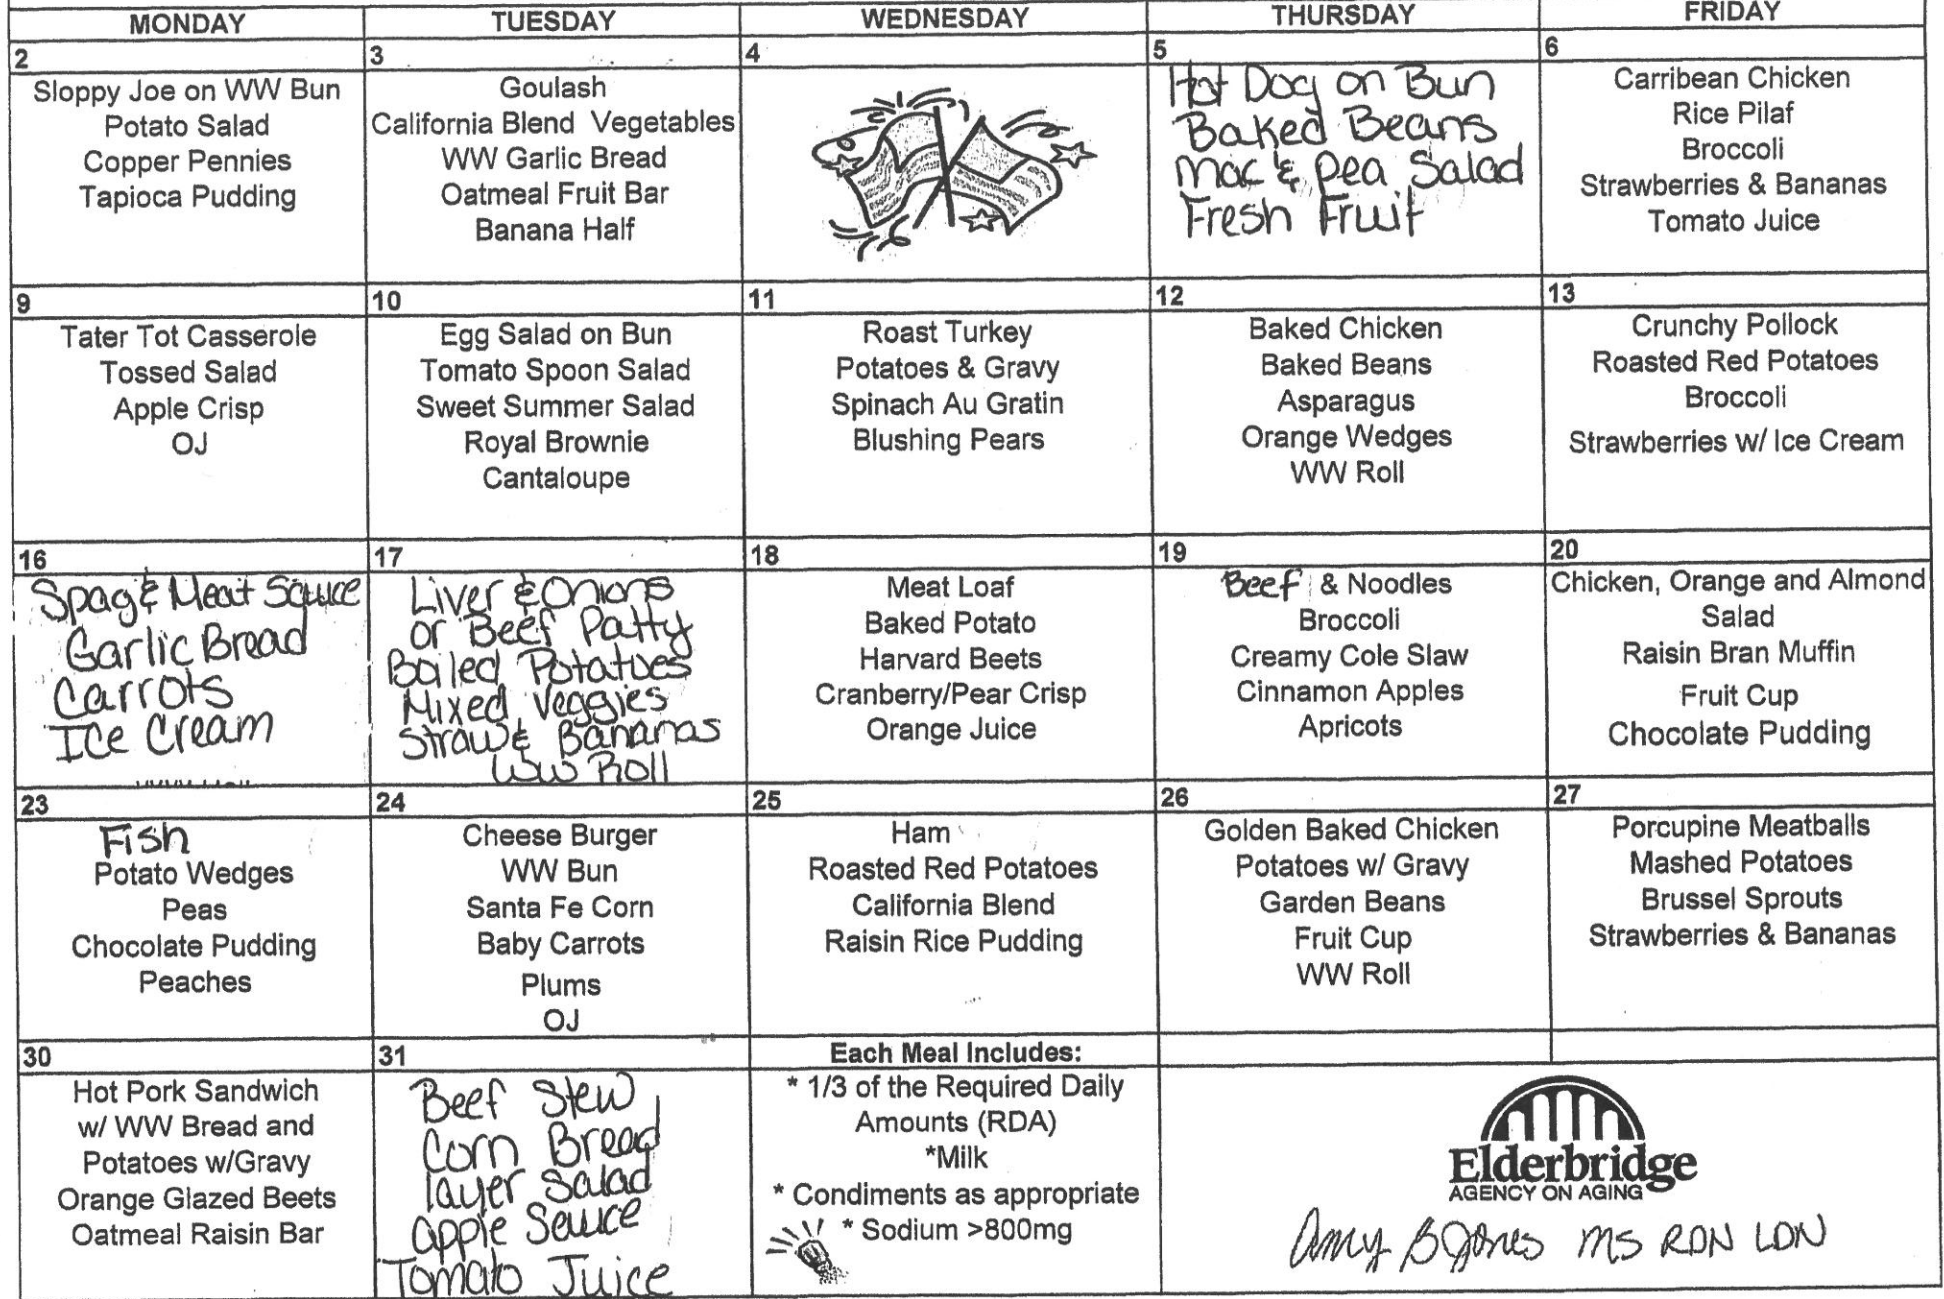 MONDAY TUESDAY WEDNESDAY THURSDAY FRIDAY
2
Sloppy Joe on WW Bun
Potato Salad
Copper Pennies
Tapioca Pudding
3
Goulash
California Blend Vegetables
WW Garlic Bread
Oatmeal Fruit Bar
Banana Half
4
5
Hot Dog on Bun
Baked Beans
Mac & Pea Salad
Fresh Fruit
6
Carribean Chicken
Rice Pilaf
Broccoli
Strawberries & Bananas
Tomato Juice
9
Tater Tot Casserole
Tossed Salad
Apple Crisp
OJ
10
Egg Salad on Bun
Tomato Spoon Salad
Sweet Summer Salad
Royal Brownie
Cantaloupe
11
Roast Turkey
Potatoes & Gravy
Spinach Au Gratin
Blushing Pears
12
Baked Chicken
Baked Beans
Asparagus
Orange Wedges
WW Roll
13
Crunchy Pollock
Roasted Red Potatoes
Broccoli
Strawberries w/ Ice Cream
16
Spag & Meat Sauce
Garlic Bread
Carrots
Ice Cream
17
Liver & Onions
or Beef Patty
Boiled Potatoes
Mixed Veggies
Straw & Bananas
WW Roll
18
Meat Loaf
Baked Potato
Harvard Beets
Cranberry/Pear Crisp
Orange Juice
19
Beef & Noodles
Broccoli
Creamy Cole Slaw
Cinnamon Apples
Apricots
20
Chicken, Orange and Almond
Salad
Raisin Bran Muffin
Fruit Cup
Chocolate Pudding
23
Fish
Potato Wedges
Peas
Chocolate Pudding
Peaches
24
Cheese Burger
WW Bun
Santa Fe Corn
Baby Carrots
Plums
OJ
25
Ham
Roasted Red Potatoes
California Blend
Raisin Rice Pudding
26
Golden Baked Chicken
Potatoes w/ Gravy
Garden Beans
Fruit Cup
WW Roll
27
Porcupine Meatballs
Mashed Potatoes
Brussel Sprouts
Strawberries & Bananas
30
Hot Pork Sandwich
w/ WW Bread and
Potatoes w/Gravy
Orange Glazed Beets
Oatmeal Raisin Bar
31
Beef Stew
Corn Bread
layer Salad
apple Sauce
Tomato Juice
Each Meal Includes:
* 1/3 of the Required Daily
Amounts (RDA)
*Milk
* Condiments as appropriate
* Sodium >800mg
Elderbridge
AGENCY ON AGING
Amy B Jones MS RDN LDN